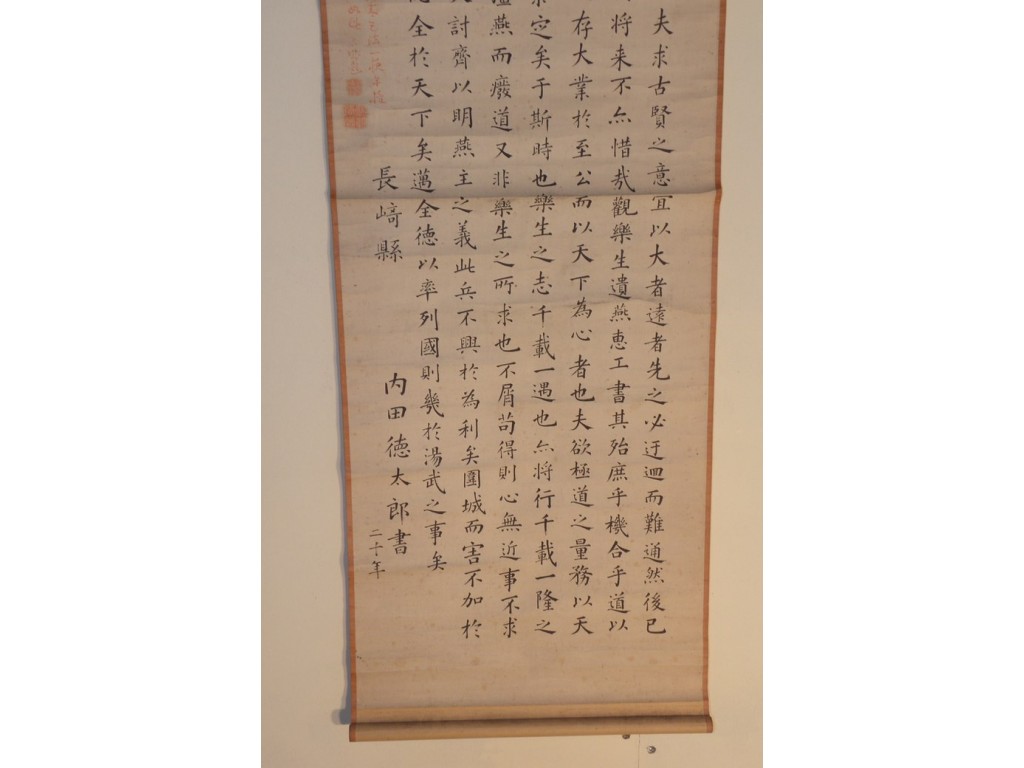 夫求古賢之意宜以大者遠者先之必迂迴而難通然後已
将来不亦惜哉觀樂生遺燕惠王書其殆庶乎機合乎道以
存大業於至公而以天下為心者也夫欲極道之量務以天
定矣于斯時也樂生之志千載一遇也亦将行千載一隆之
燕而廢道又非樂生之所求也不屑苟得則心無近事不求
討齊以明燕主之義此兵不興於為利矣圍城而害不加於
全於天下矣邁全德以率列國則幾於湯武之事矣
長﨑縣 内田德太郎書
二十年